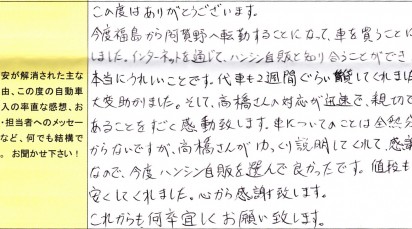 安が解消された主な
由、この度の自動車
入の率直な感想、お
・担当者へのメッセー
など、何でも結構で
。 お聞かせ下さい！
この度はありがとうございます。
今度福島から阿賀野へ転勤することになって、車を買うことに
しました。インターネットを通じて、ハンシン自販と知り合うことができ
本当にうれしいことです。代車も2週間ぐらい してくれました
大変助かりました。そして、高橋さんの対応が迅速で、親切で
あることをすごく感動致します。車についてのことは全然分
からないですが、高橋さんがゆっくり説明してくれて、感謝
なので、今度ハンシン自販を選んで良かったです。値段も
安くしてくれました。心から感謝致します。
これからも何卒宜しくお願い致します。